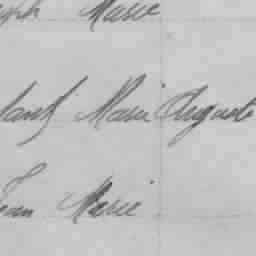 eph Marie
Marie Auguste
Jean Marie